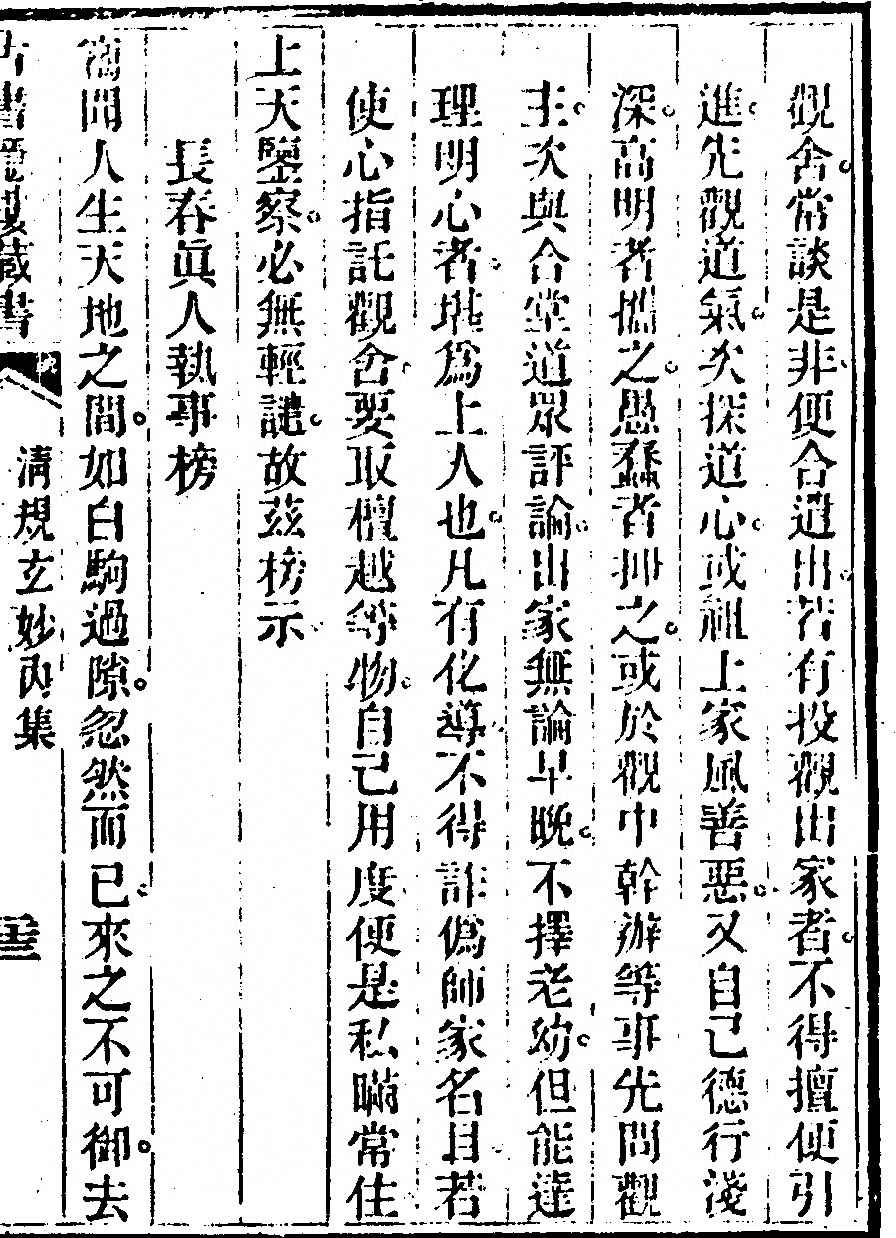 觀舍常談是非便合遣出若有投觀出家者不得擅便引
進先觀道氣次探道心或祖上家風善惡又自己德行淺
深高明者攜之愚蠢者抑之或於觀中幹辦等事先問觀
主次與合堂道眾評論出家無論早晚不擇老幼但能達
理明心者堪為上人也凡有化導不得詐偽師家名目若
使心指託觀舍要取檀越等物自己用度便是私瞞常住
上天鑒察必無輕譴故茲榜示
長春眞人執事榜
竊聞人生天地之間如白駒過隙忽然而已來之不可御去
藏書
清規玄妙內集